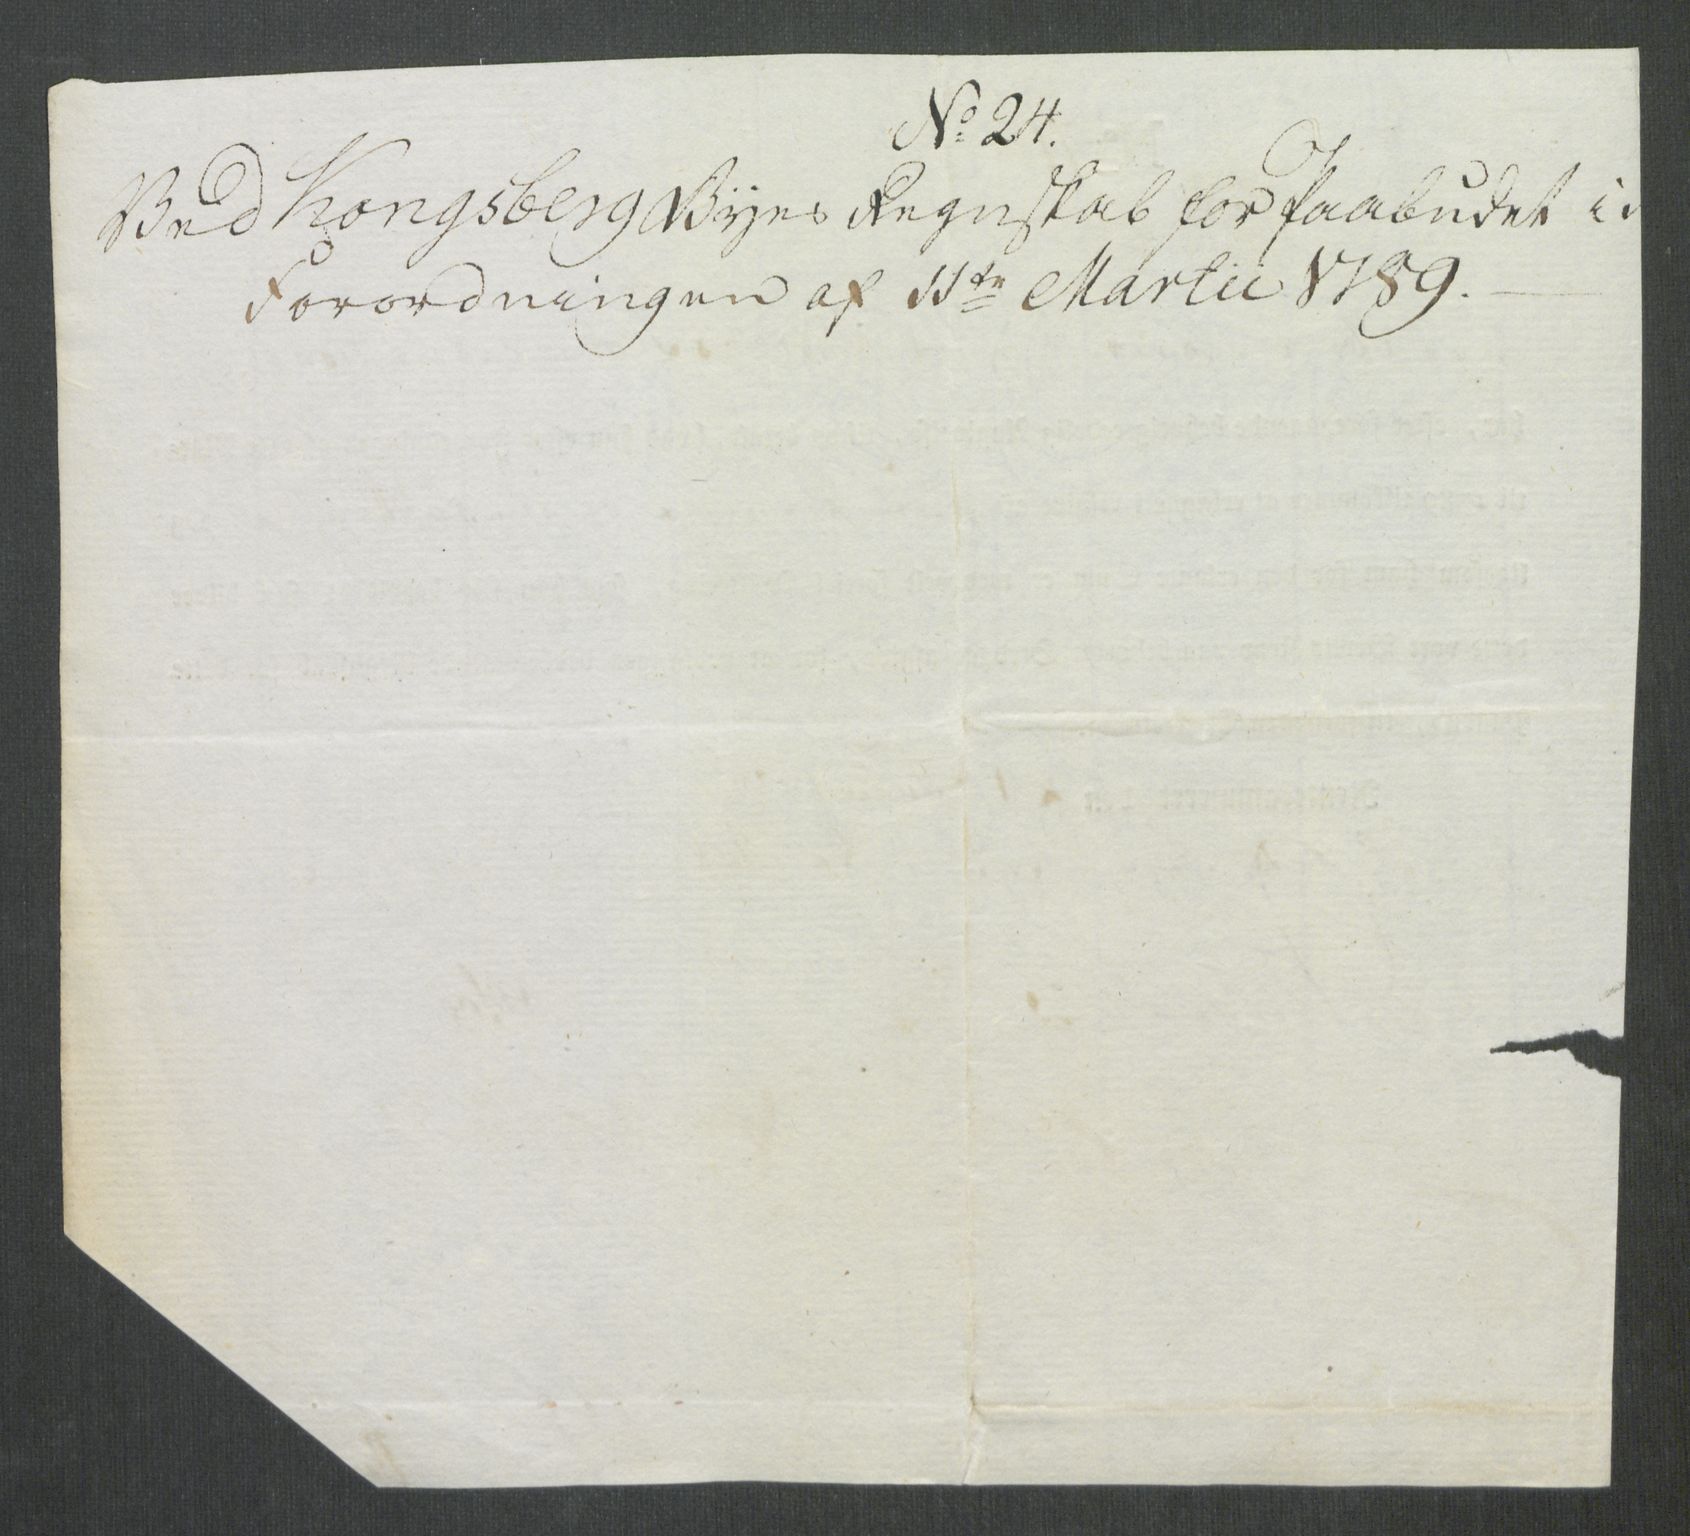 No 24.
Ved Kongsberg Byes Regnskab for Paabudet i
Forordningen af 11te Martii 1789.